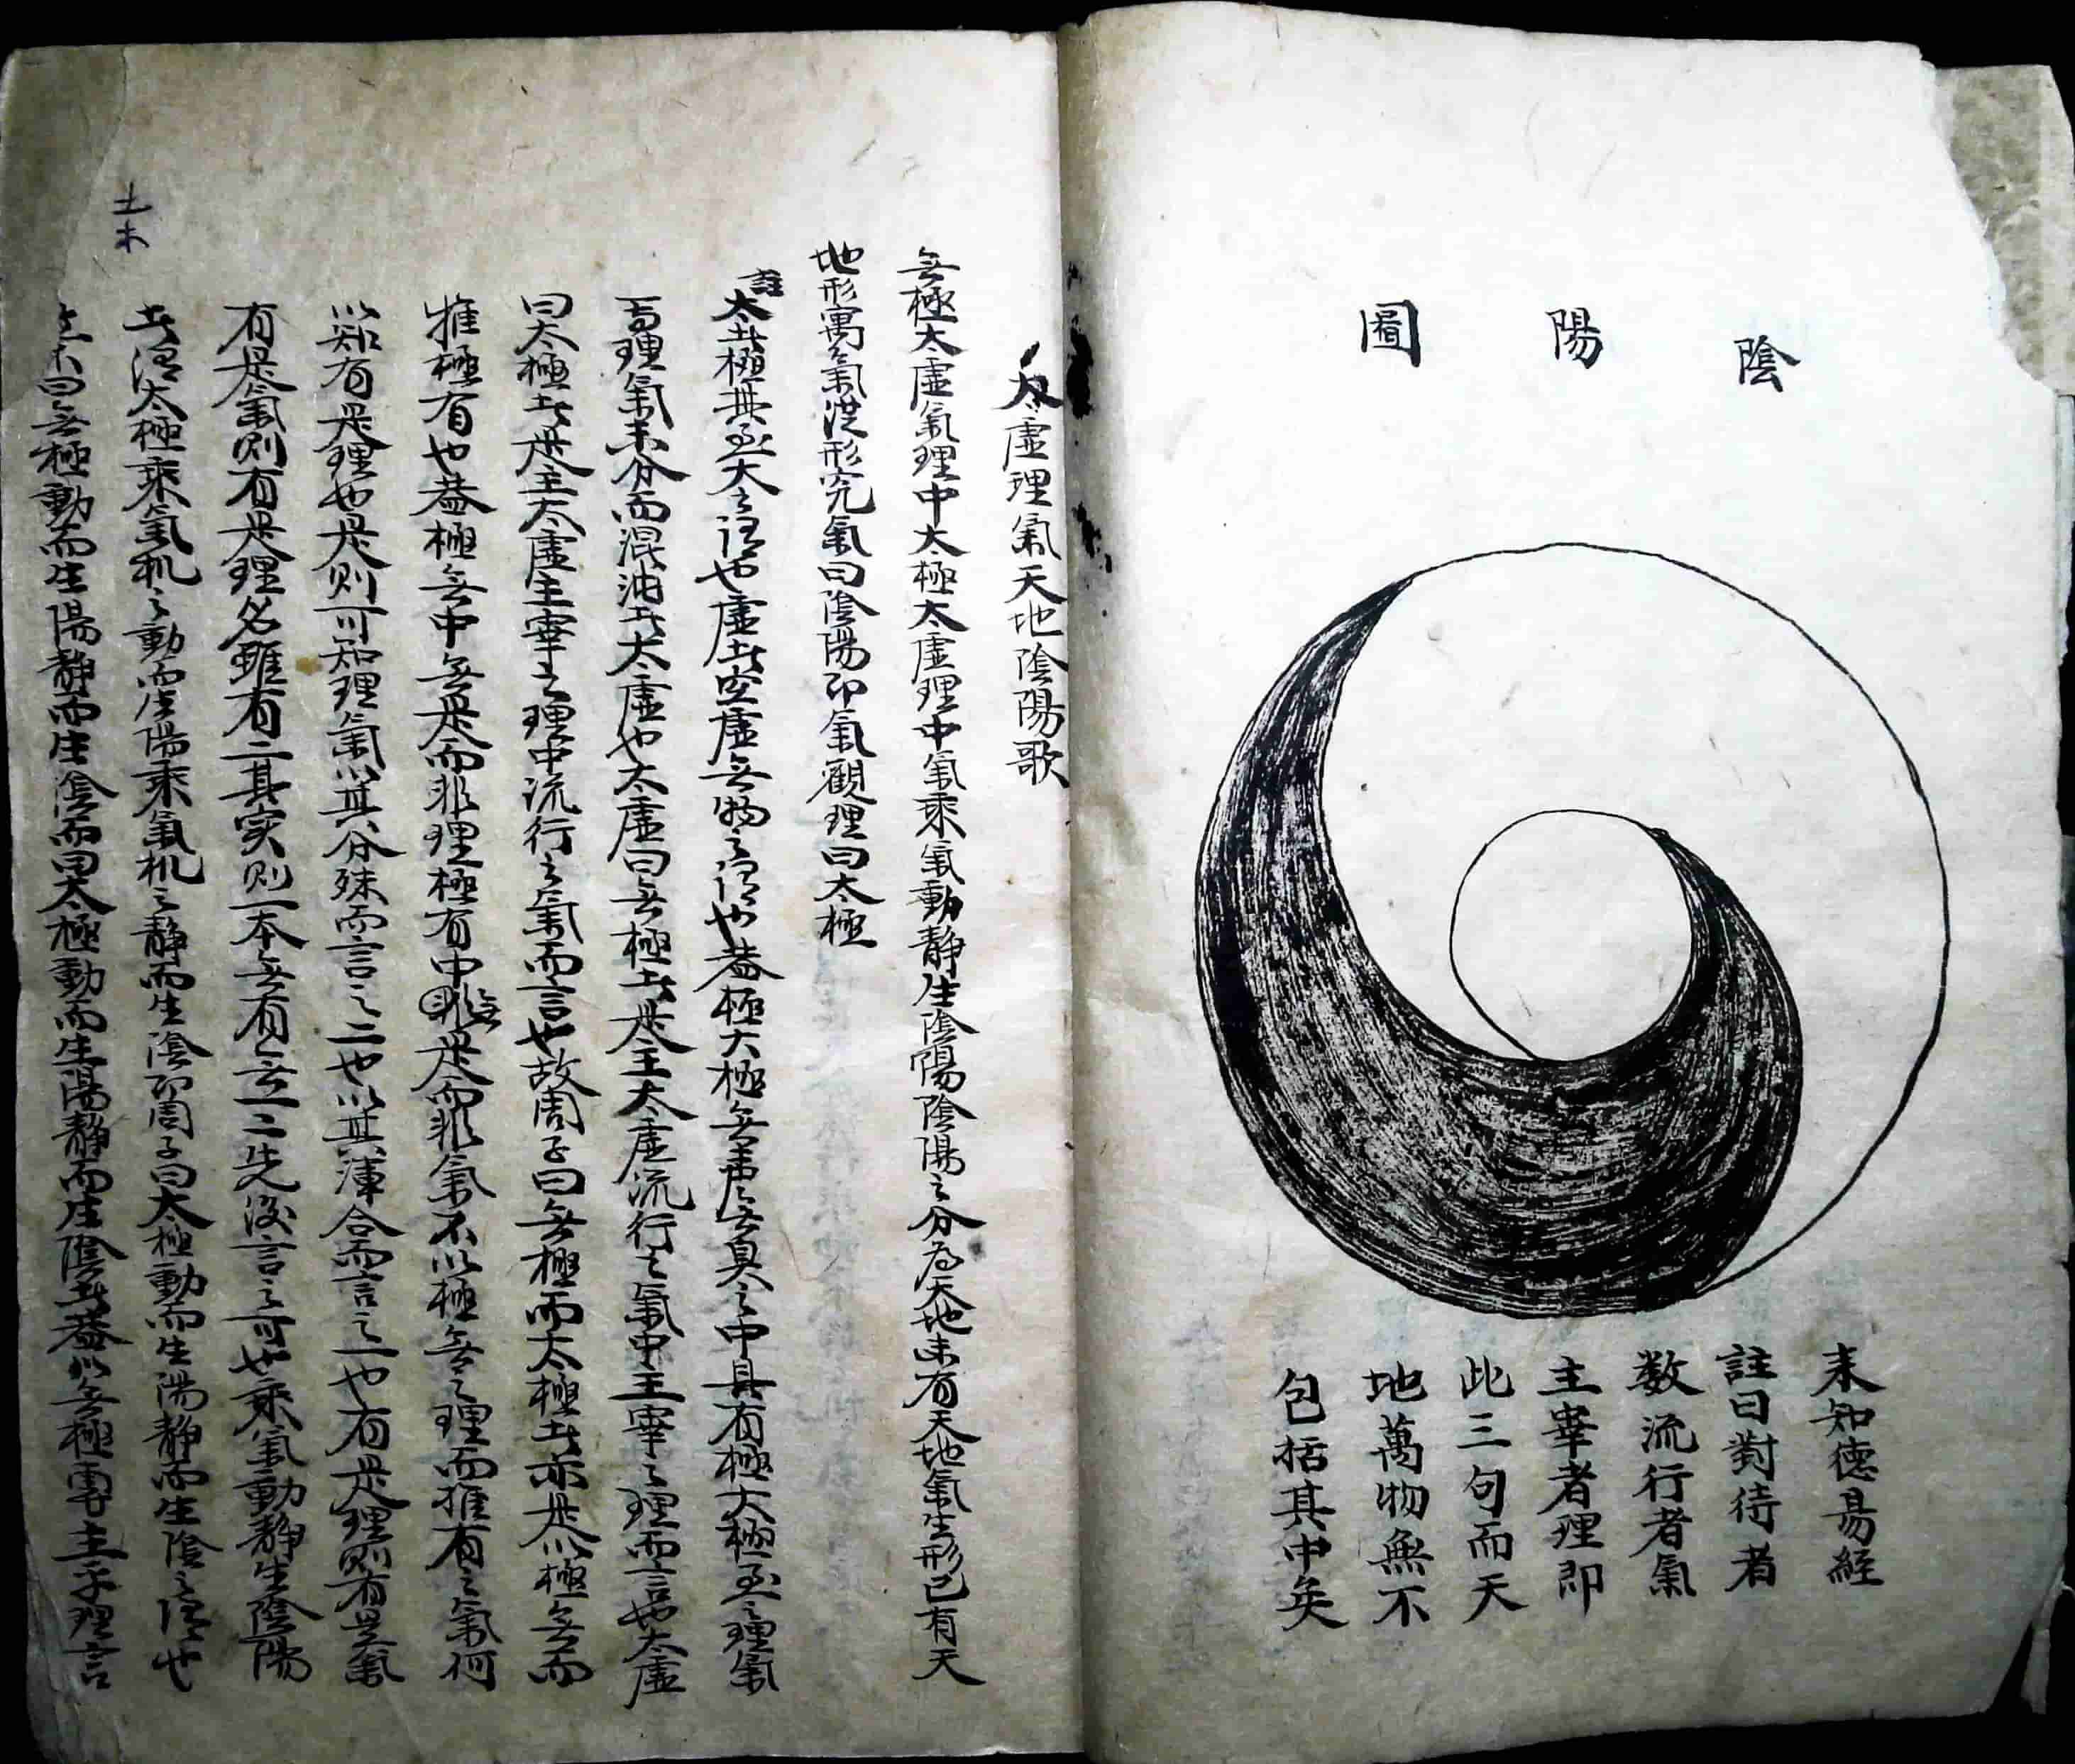 陰陽圖
末知德昜經
註曰對待者
数流行者氣
主宰者理即
此三句而天
地萬物無不
包括其中矣
太虛理氣天地陰陽歌
無極太虛氣理中太極太虛理中氣乘氣動静生陰陽陰陽之分為天地未有天地氣生形已有天
地形寓氣從形究氣曰陰陽即氣觀理曰太極
註
太者極其至大之谓也虛者空虛無物之谓也葢極大極無聲無臭之中具有極大極至之理氣
焉理氣未分而混沌者太虛也太虛曰無極者是主太虛流行之氣中主宰之理而言也太虛
曰太極者是主太虛主宰之理中流行之氣而言也故周子曰無極而太極者亦是以極無而
推極有也葢極無中無是而非理極有中無是而非氣不以極無之理而推有之氣何
以知有是理也是则可知理氣以其分殊而言之二也以其渾合而言之一也有是理则有是氣
有是氣则有是理名雖有二其実则一本無有無一二先後言之可也乘氣動静生陰陽
者谓太極乘氣机之動而生陽乘氣机之静而生陰即周子曰太極動而生陽静而生陰之谓也
不曰無極動而生陽静而生陰而曰太極動而生陽静而生陰者葢以無極專主乎理言